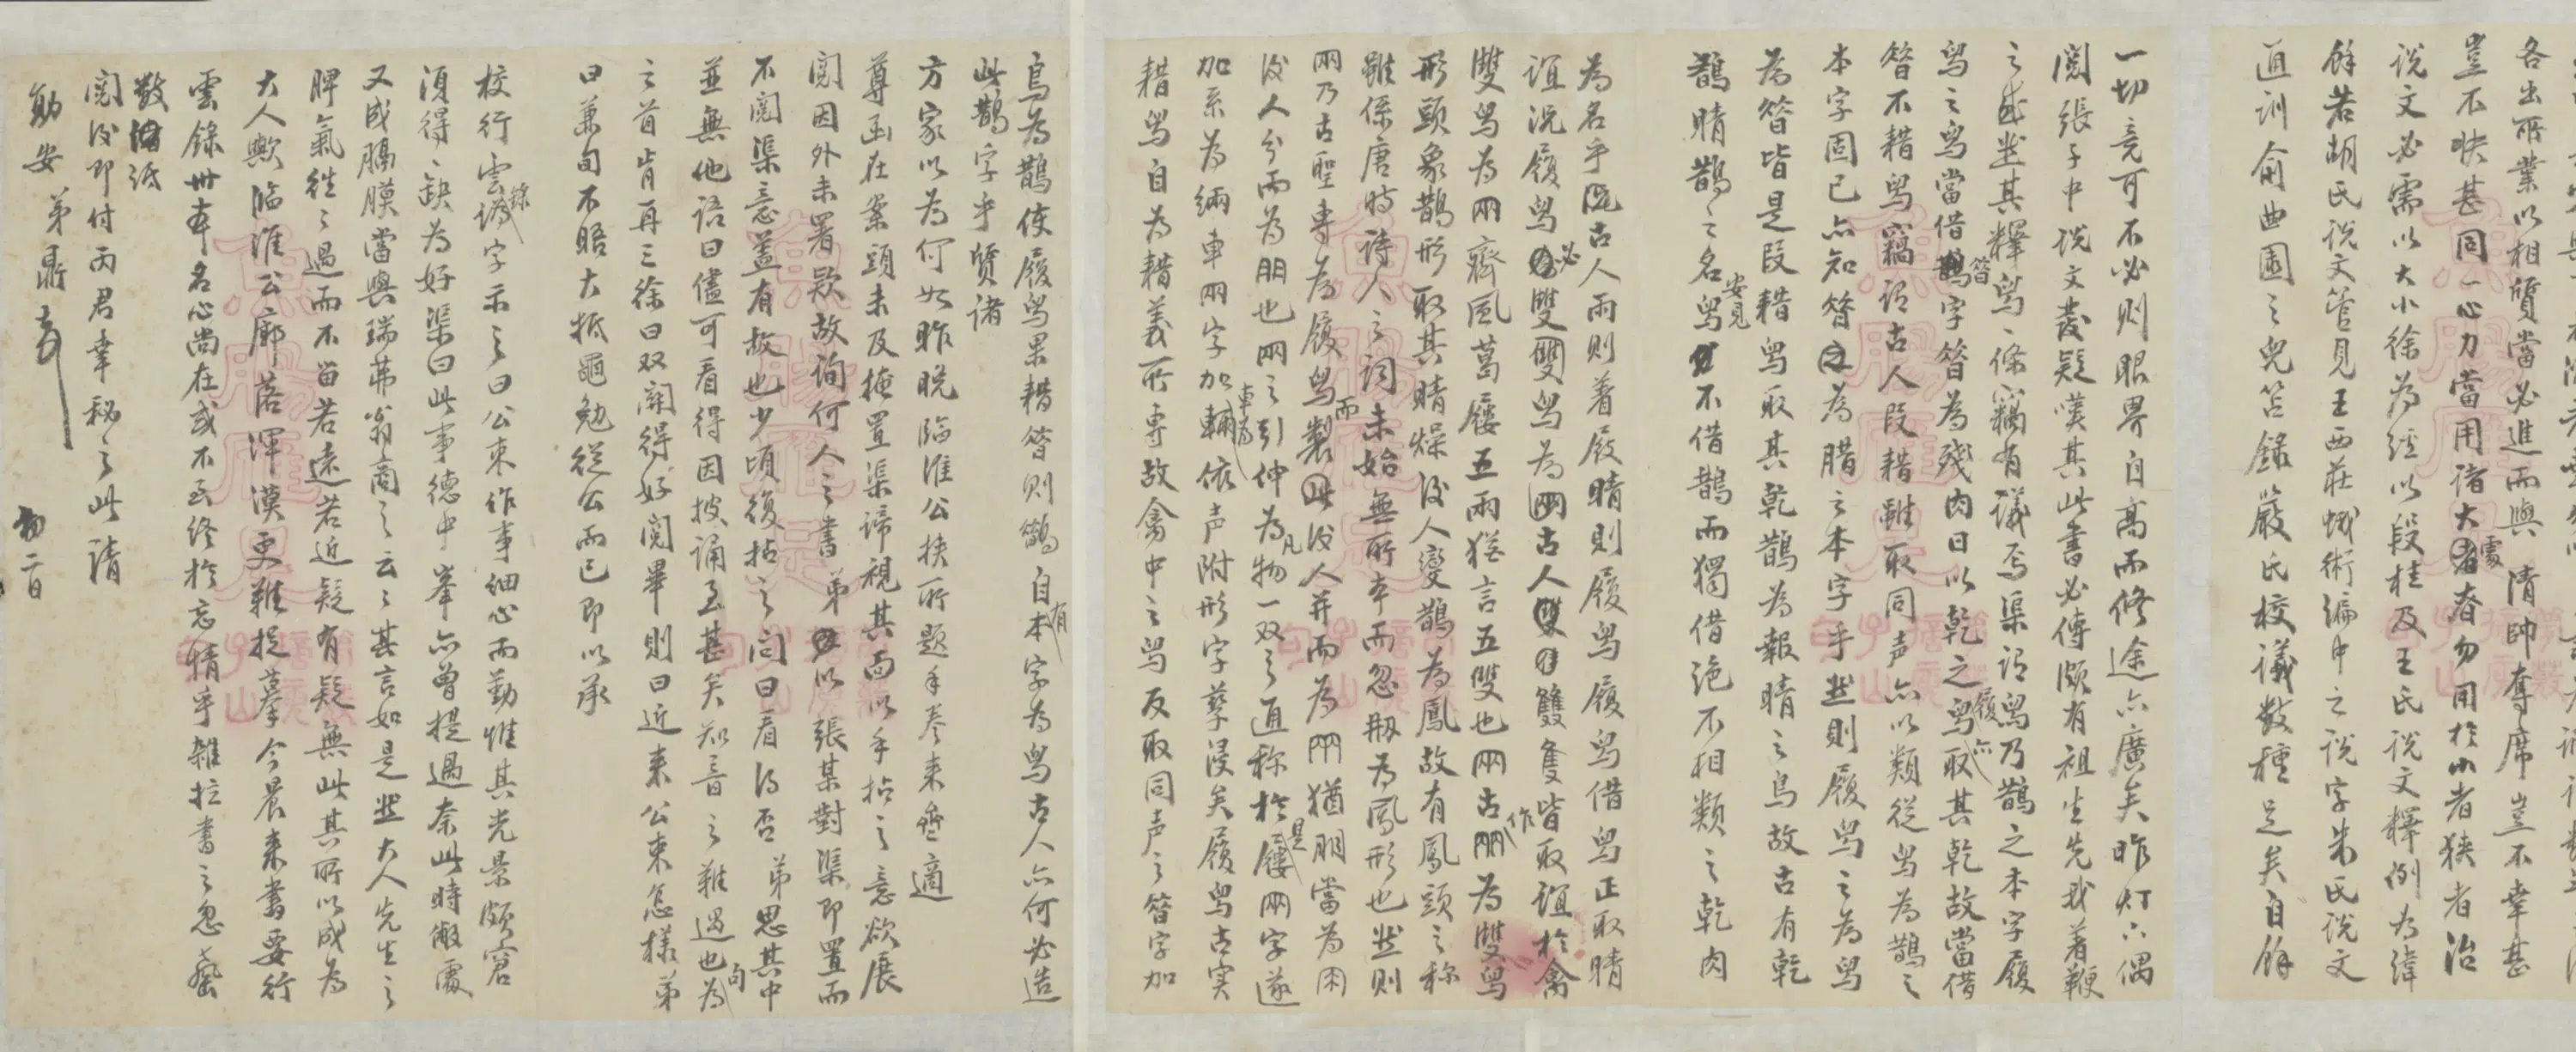 各出所業以相質當必進而與 清帥奪席豈不幸甚
豈不快甚同一心力當用諸大處者奢勿用於小者狹者治
說文必需以大小徐為經以段桂及王氏說文釋例為緯
餘若胡氏說文管見王西莊蛾術編中之說字朱氏說文
通訓俞曲園之兒笘錄嚴氏校議數種足矣自餘
一切竟可不必則眼界自高而修途亦廣矣昨灯下偶
閱張子中說文發疑嘆其此書必傳頗有祖生先我着鞭
之感然其釋舄一條竊有議焉渠謂舄乃鵲之本字履
舄之舄當借䇎字䇎為殘肉日以乾之履舄亦取其乾故當借
䇎不耤舄竊謂古人叚耤雖取同声亦以類從舄為鵲之
本字固已亦知䇎為腊之本字乎然則履舄之為舄
為䇎皆是叚耤舄取其乾鵲為報晴之鳥故古有乾
鵲晴鵲之名舄安見不借鵲而獨借絶不相類之乾肉
為名乎況古人雨則着屐晴則履舄履舄借舄正取晴
誼況履舄必雙雙舄為兩古人雙隻皆取誼於禽
雙舄為兩齊風葛屨五兩猶言五雙也兩古作㒳為雙舄
形頭象鵲形取其晴燥後人變鵲為鳳故有鳳頭之称
雖係唐時詩人之詞未始無所本而忽剏為鳳形也然則
㒳乃古聖專為履舄而製後人并而為㒳猶朋當為
後人分而為朋也㒳之引伸為凡物一双之通称於是屨兩字遂
加糸為緉車兩字加車為輛依声附形字孳浸矣履舄古実
耤舄自為耤義所專故禽中之舄反取同声之䇎字加
鳥為鵲使履舄果耤䇎則自有本字為舄古人亦何必造
此鵲字乎質諸
方家以為何如昨晚臨淮公挾所題手卷來齋適
尊函在案頭未及掩置渠諦視其面以手拈之意欲展
閱因外未署欵故詢何人之書 弟以張某對渠即置而
不閱渠意蓋有故也少頃復拈之问曰看得否 弟思其中
並無他語曰儘可看得因披誦至甚矣知音之難遇也句為
之首肯再三徐曰双関得好閱畢則曰近來公束怎樣弟
曰兼旬不晤大抵黽勉從公而已即以承
校行雲錄字示之曰公束作事細心而勤惟其光景頗窘
須得一缺為好渠曰此事德中峯亦曾提過奈此時缴處
又成膈膜當與瑞茀翁商之云云其言如是然大人先生之
脾氣往往過而不留若遠若近疑有疑無此其所以成為
大人歟臨淮公廓落渾漠更難捉摹今晨來書要行
雲錄卅本名心尚在或不至終於忘情乎雜拉書之忽

閱後即付丙君幸秘之此請
勛安 弟鼎
初二日